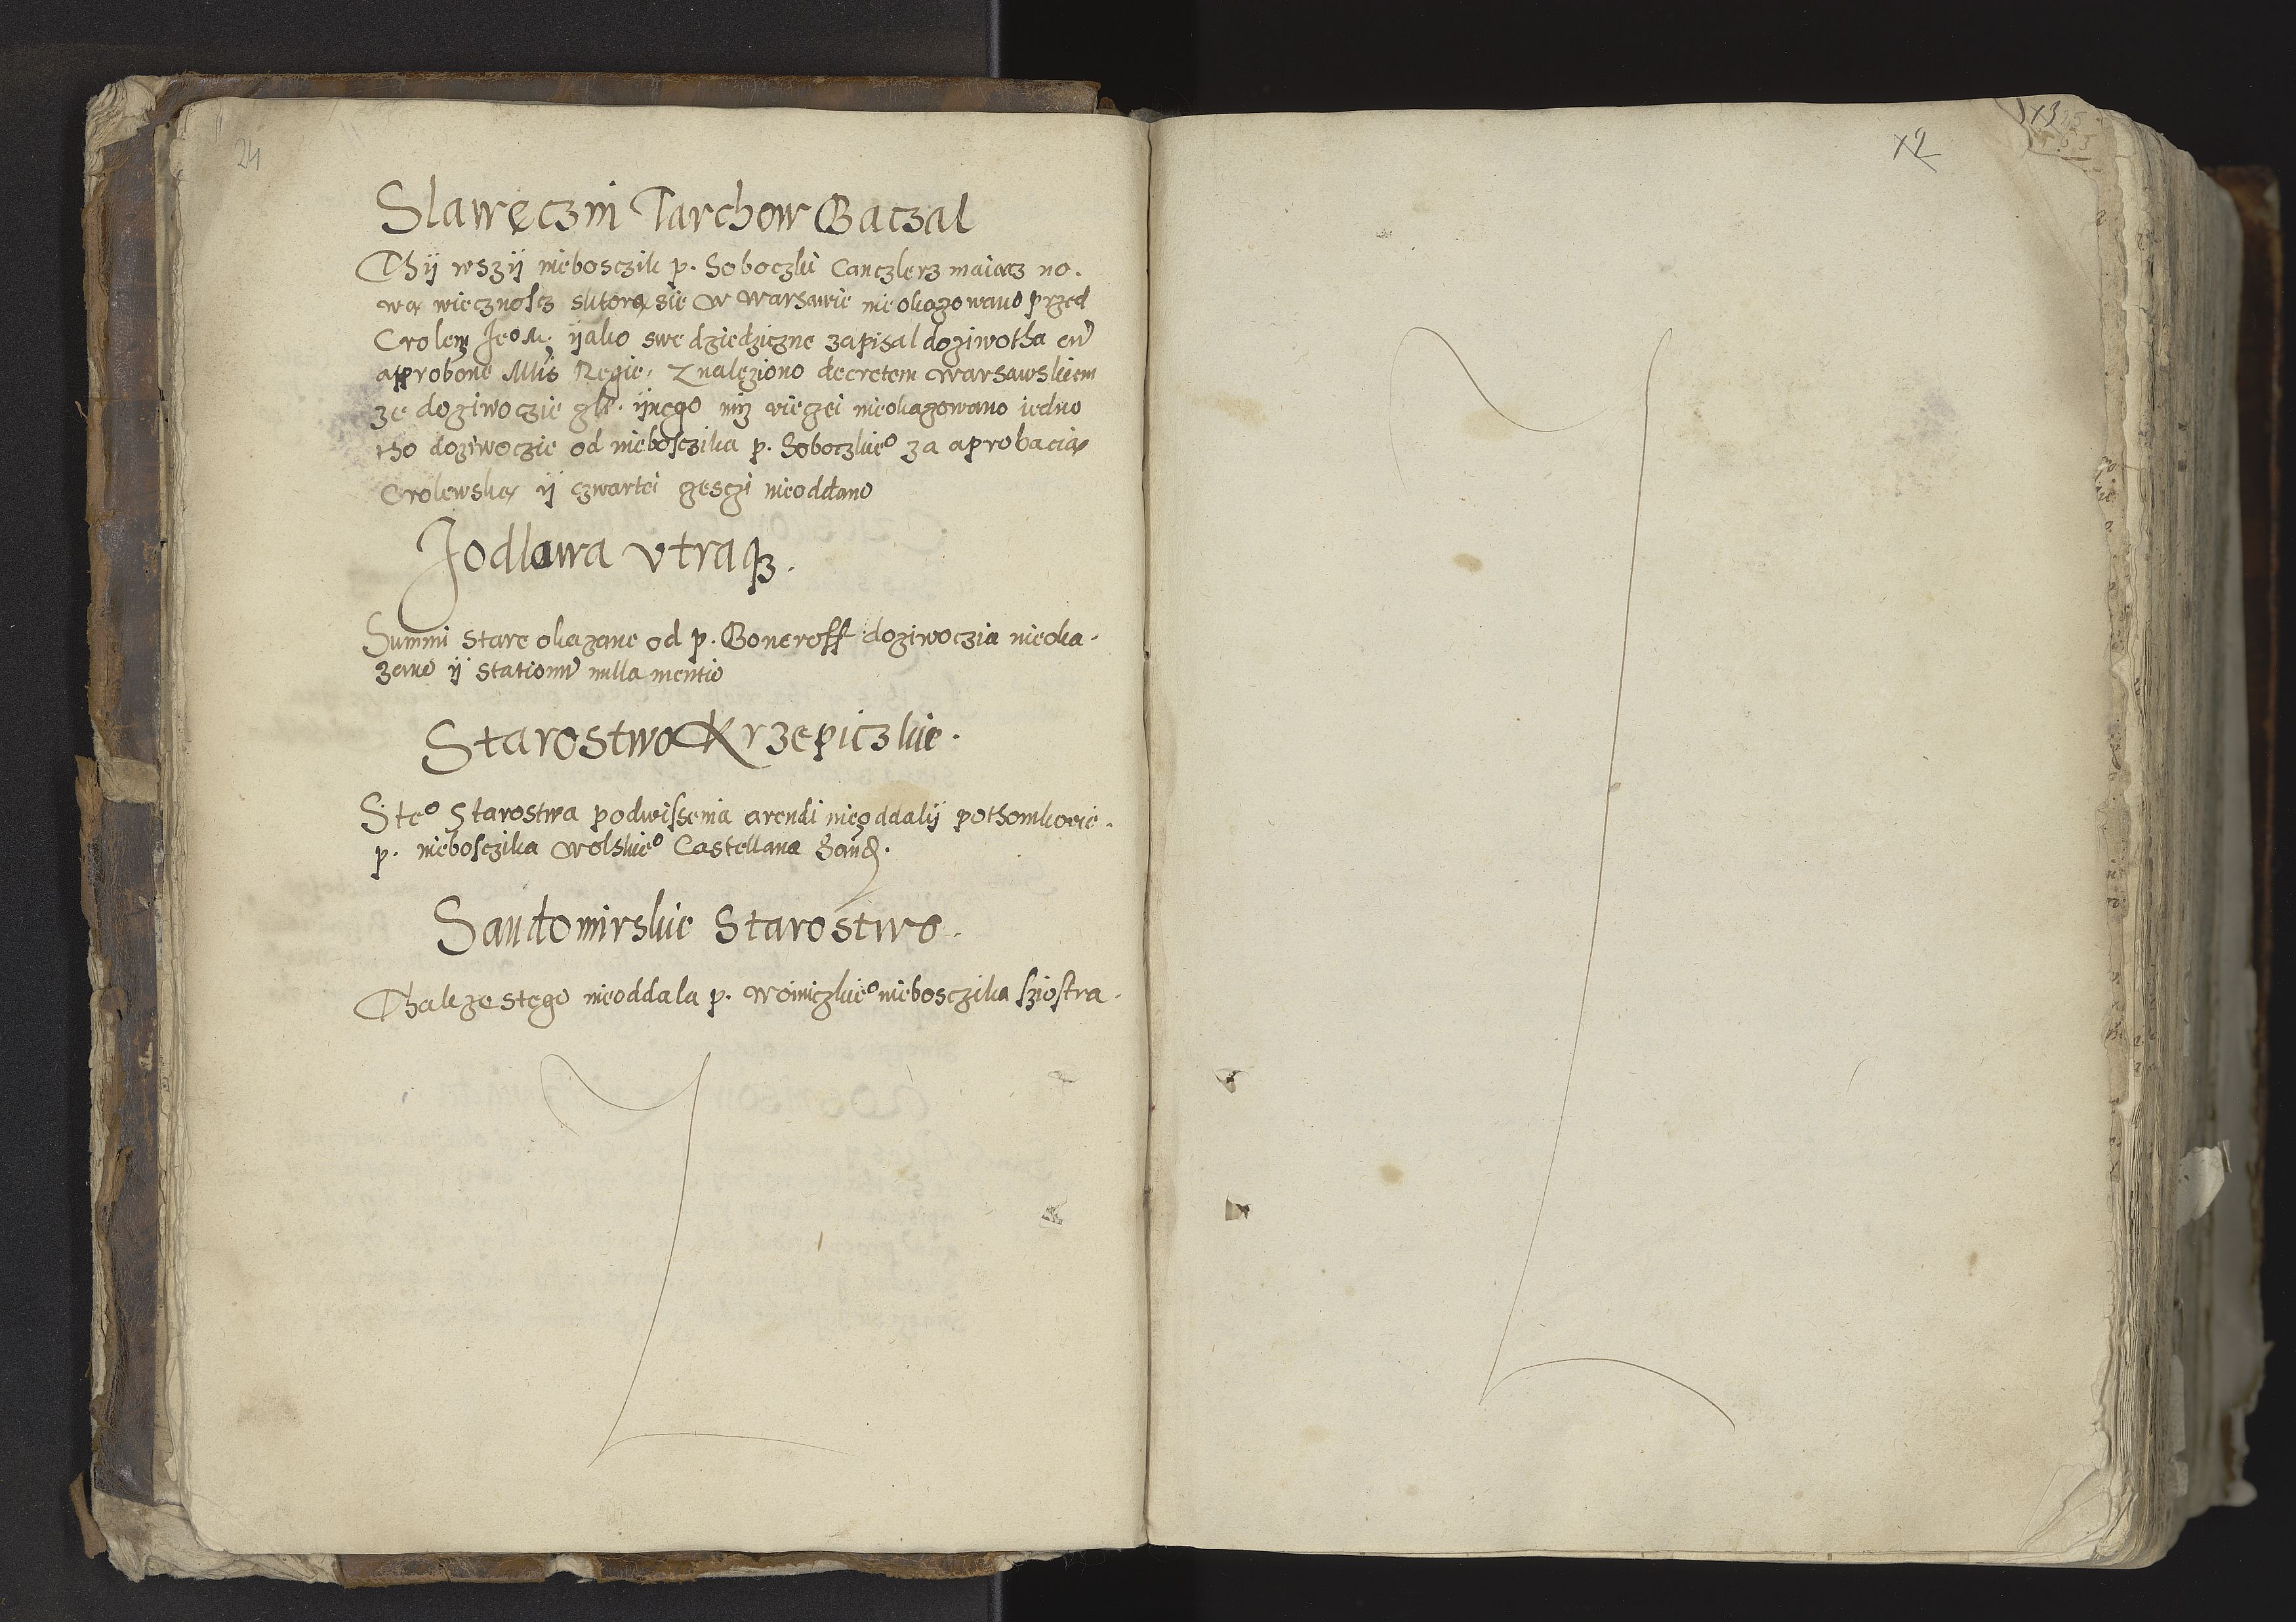 24
Slawęczni Tarchow Baczal
Thij wszij nieboszczik p. Soboczki Canczlerz maiącz no-
wą wiecznoscz ktorą sie w warsawie nieokazowano przed
Crolem Jeo M. ijako swe dziedziczne zapisal doziwotha cu
aprobone Mtis Regie. Znaleziono decretem warsawskiem
ze doziwoczie gdi ijnego niz vieczei nieokazowano iedno
tho doziwoczie od nieboszczika p. Soboczkieo za aprobacią
Crolewską ij czwartei czesczi nieoddano
Jodlowa vtraqз.
Summi stare okazane od p. Boneroff doziwoczia nieoka-
zano ij stationu nulla mentio
Starostwo Krzepiczkie.
S teo Starostwa podwissenia arendi nieoddalij pothomkowie
p. nieboszczika wolskieo Castellana Sand.
Sandomirskie Starostwo.
Thakze stego nieoddala p. woiniczkieo nieboszczika sziostra.
12
13
25